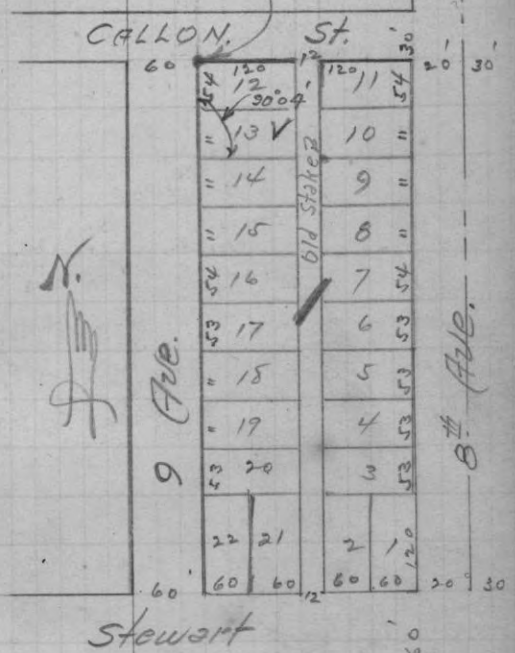 CALLON. St. 30'
60' 120 12' 120 20' 30'
54 12 11 54
90°04'
" 13 ✓ 10 "
" 14 9 "
" 15 8 "
54 16 7 54
53 17 6 53
" 18 5 53
" 19 4 53
53 20 3 53
22 21 2 1 120
60' 60 60 12 60 60 20' 30
Old Stakes
N.
9 Ave.
8th Ave.
Stewart